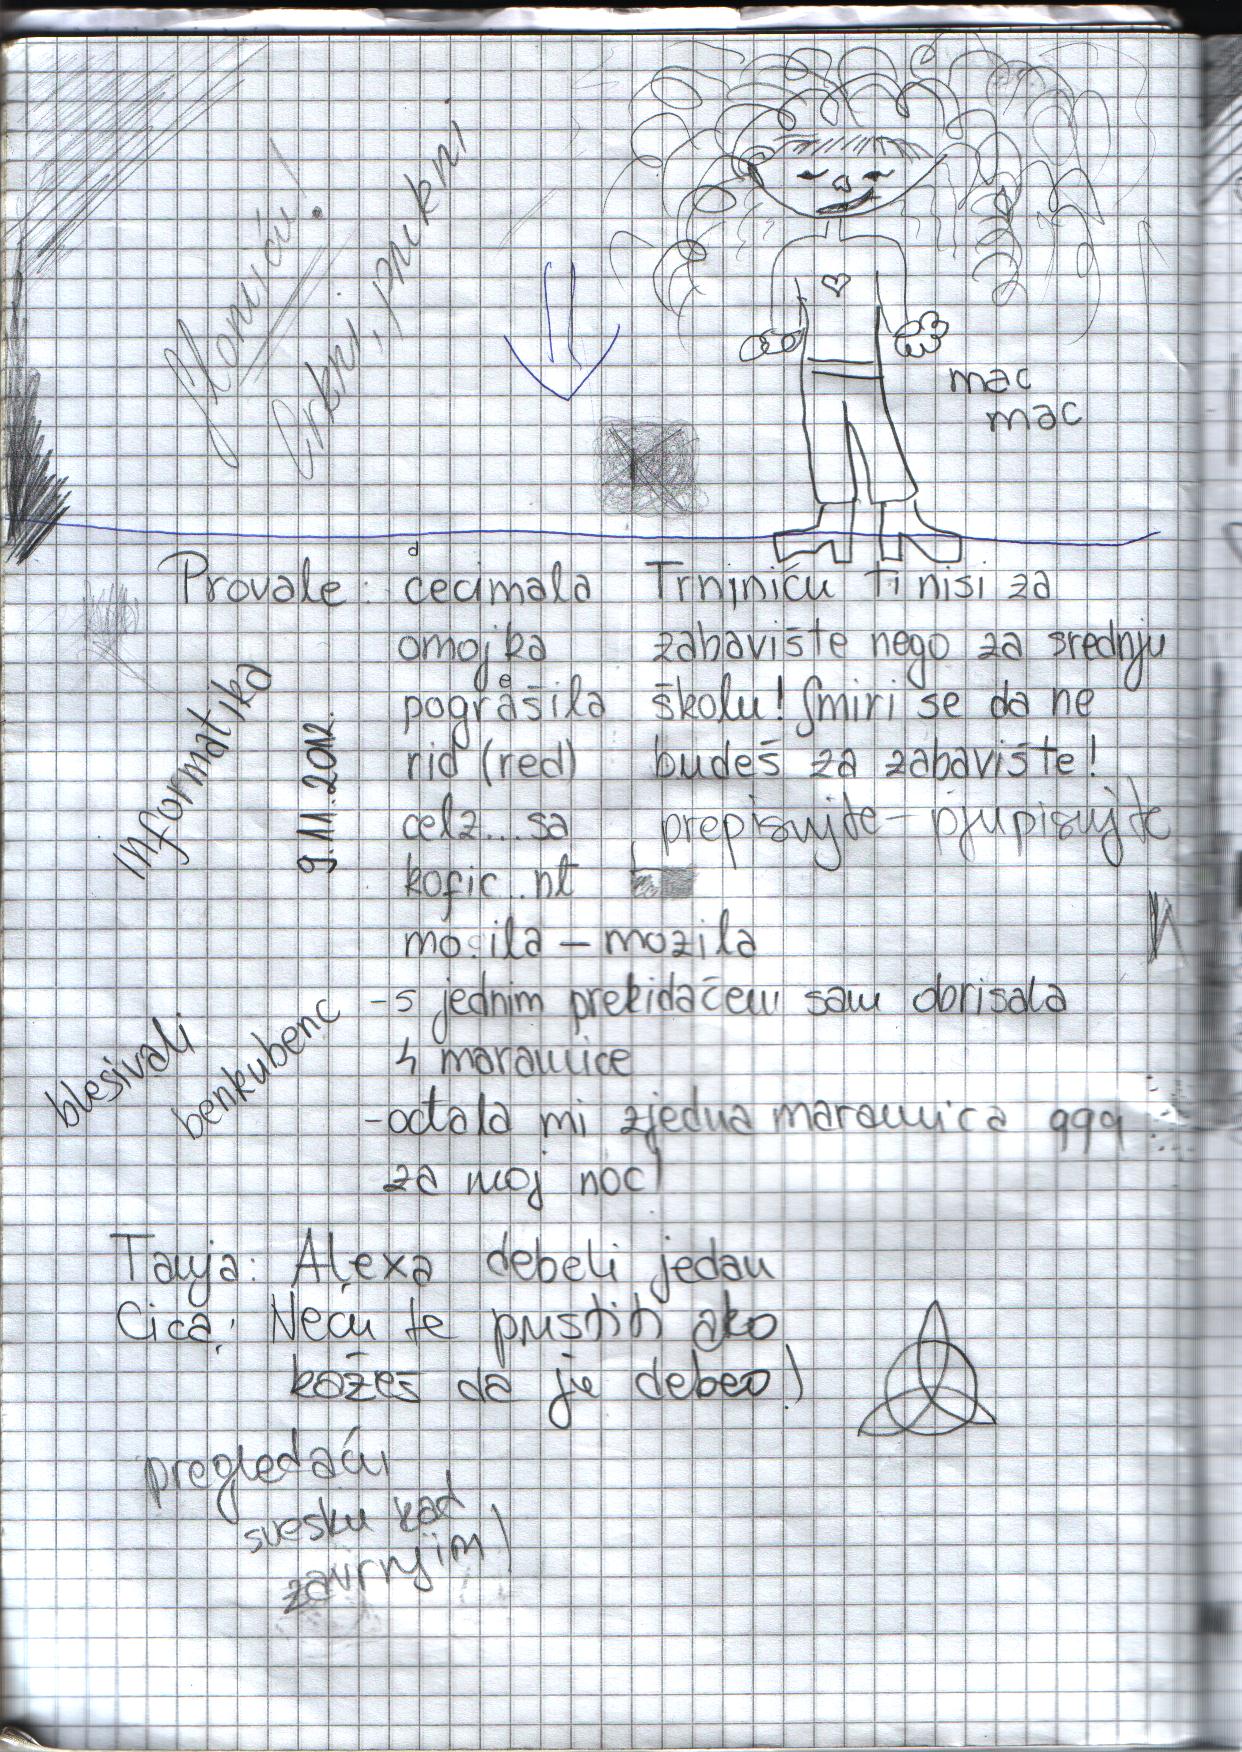 Crkni, pukni
mac
mac
Provale: ćecimala
d
omojka
pograšila
e
rid (red)
celz...sa
kofic..nt
mo.ila – mozila
Trnjniću ti nisi za
zabavište nego za srednju
školu! Smiri se da ne
budeš za zabavište!
prepisujte – pjupisujte
Informatika
9.11.2012.
- s jednim prekidačem sam obrisala
4 maramice
blesivali
benkubenc
- octala mi zjedna maramica qqq
za moj noc!
Tanja: Alexa debeli jedan
Cica: Neću te pustiti ako
kažeš da je debeo!
pregledaću
svesku kad
zavrnjim!